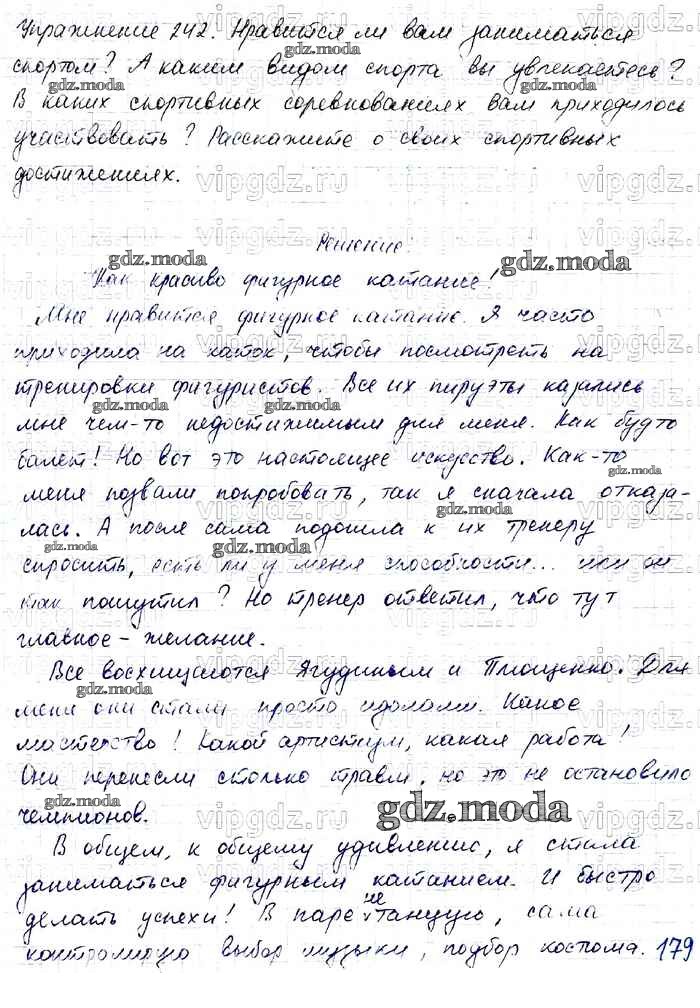 Упражнение 242. Нравится ли вам заниматься
спортом? А каким видом спорта вы увлекаетесь?
В каких спортивных соревнованиях вам приходилось
участвовать? Расскажите о своих спортивных
достижениях.
Решение:
Как красиво фигурное катание!
Мне нравится фигурное катание. Я часто
приходила на каток, чтобы посмотреть на
тренировки фигуристов. Все их пируэты казались
мне чем-то недостижимым для меня. Как будто
балет! Но вот это настоящее искусство. Как-то
меня позвали попробовать, так я сначала отказа-
лась. А после сама подошла к их тренеру
спросить, есть ли у меня способности... или он
так пошутил? Но тренер ответил, что тут
главное - желание.
Все восхищаются Ягудиным и Плющенко. Для
меня они стали просто идолами. Какое
мастерство! Какой артистизм, какая работа!
Они перенесли столько травм, но это не остановило
чемпионов.
В общем, к общему удивлению, я стала
заниматься фигурным катанием. И быстро
делать успехи! В паре не танцую, сама
контролирую выбор музыки, подбор костюма. 179
gdz.moda
vipgdz.ru